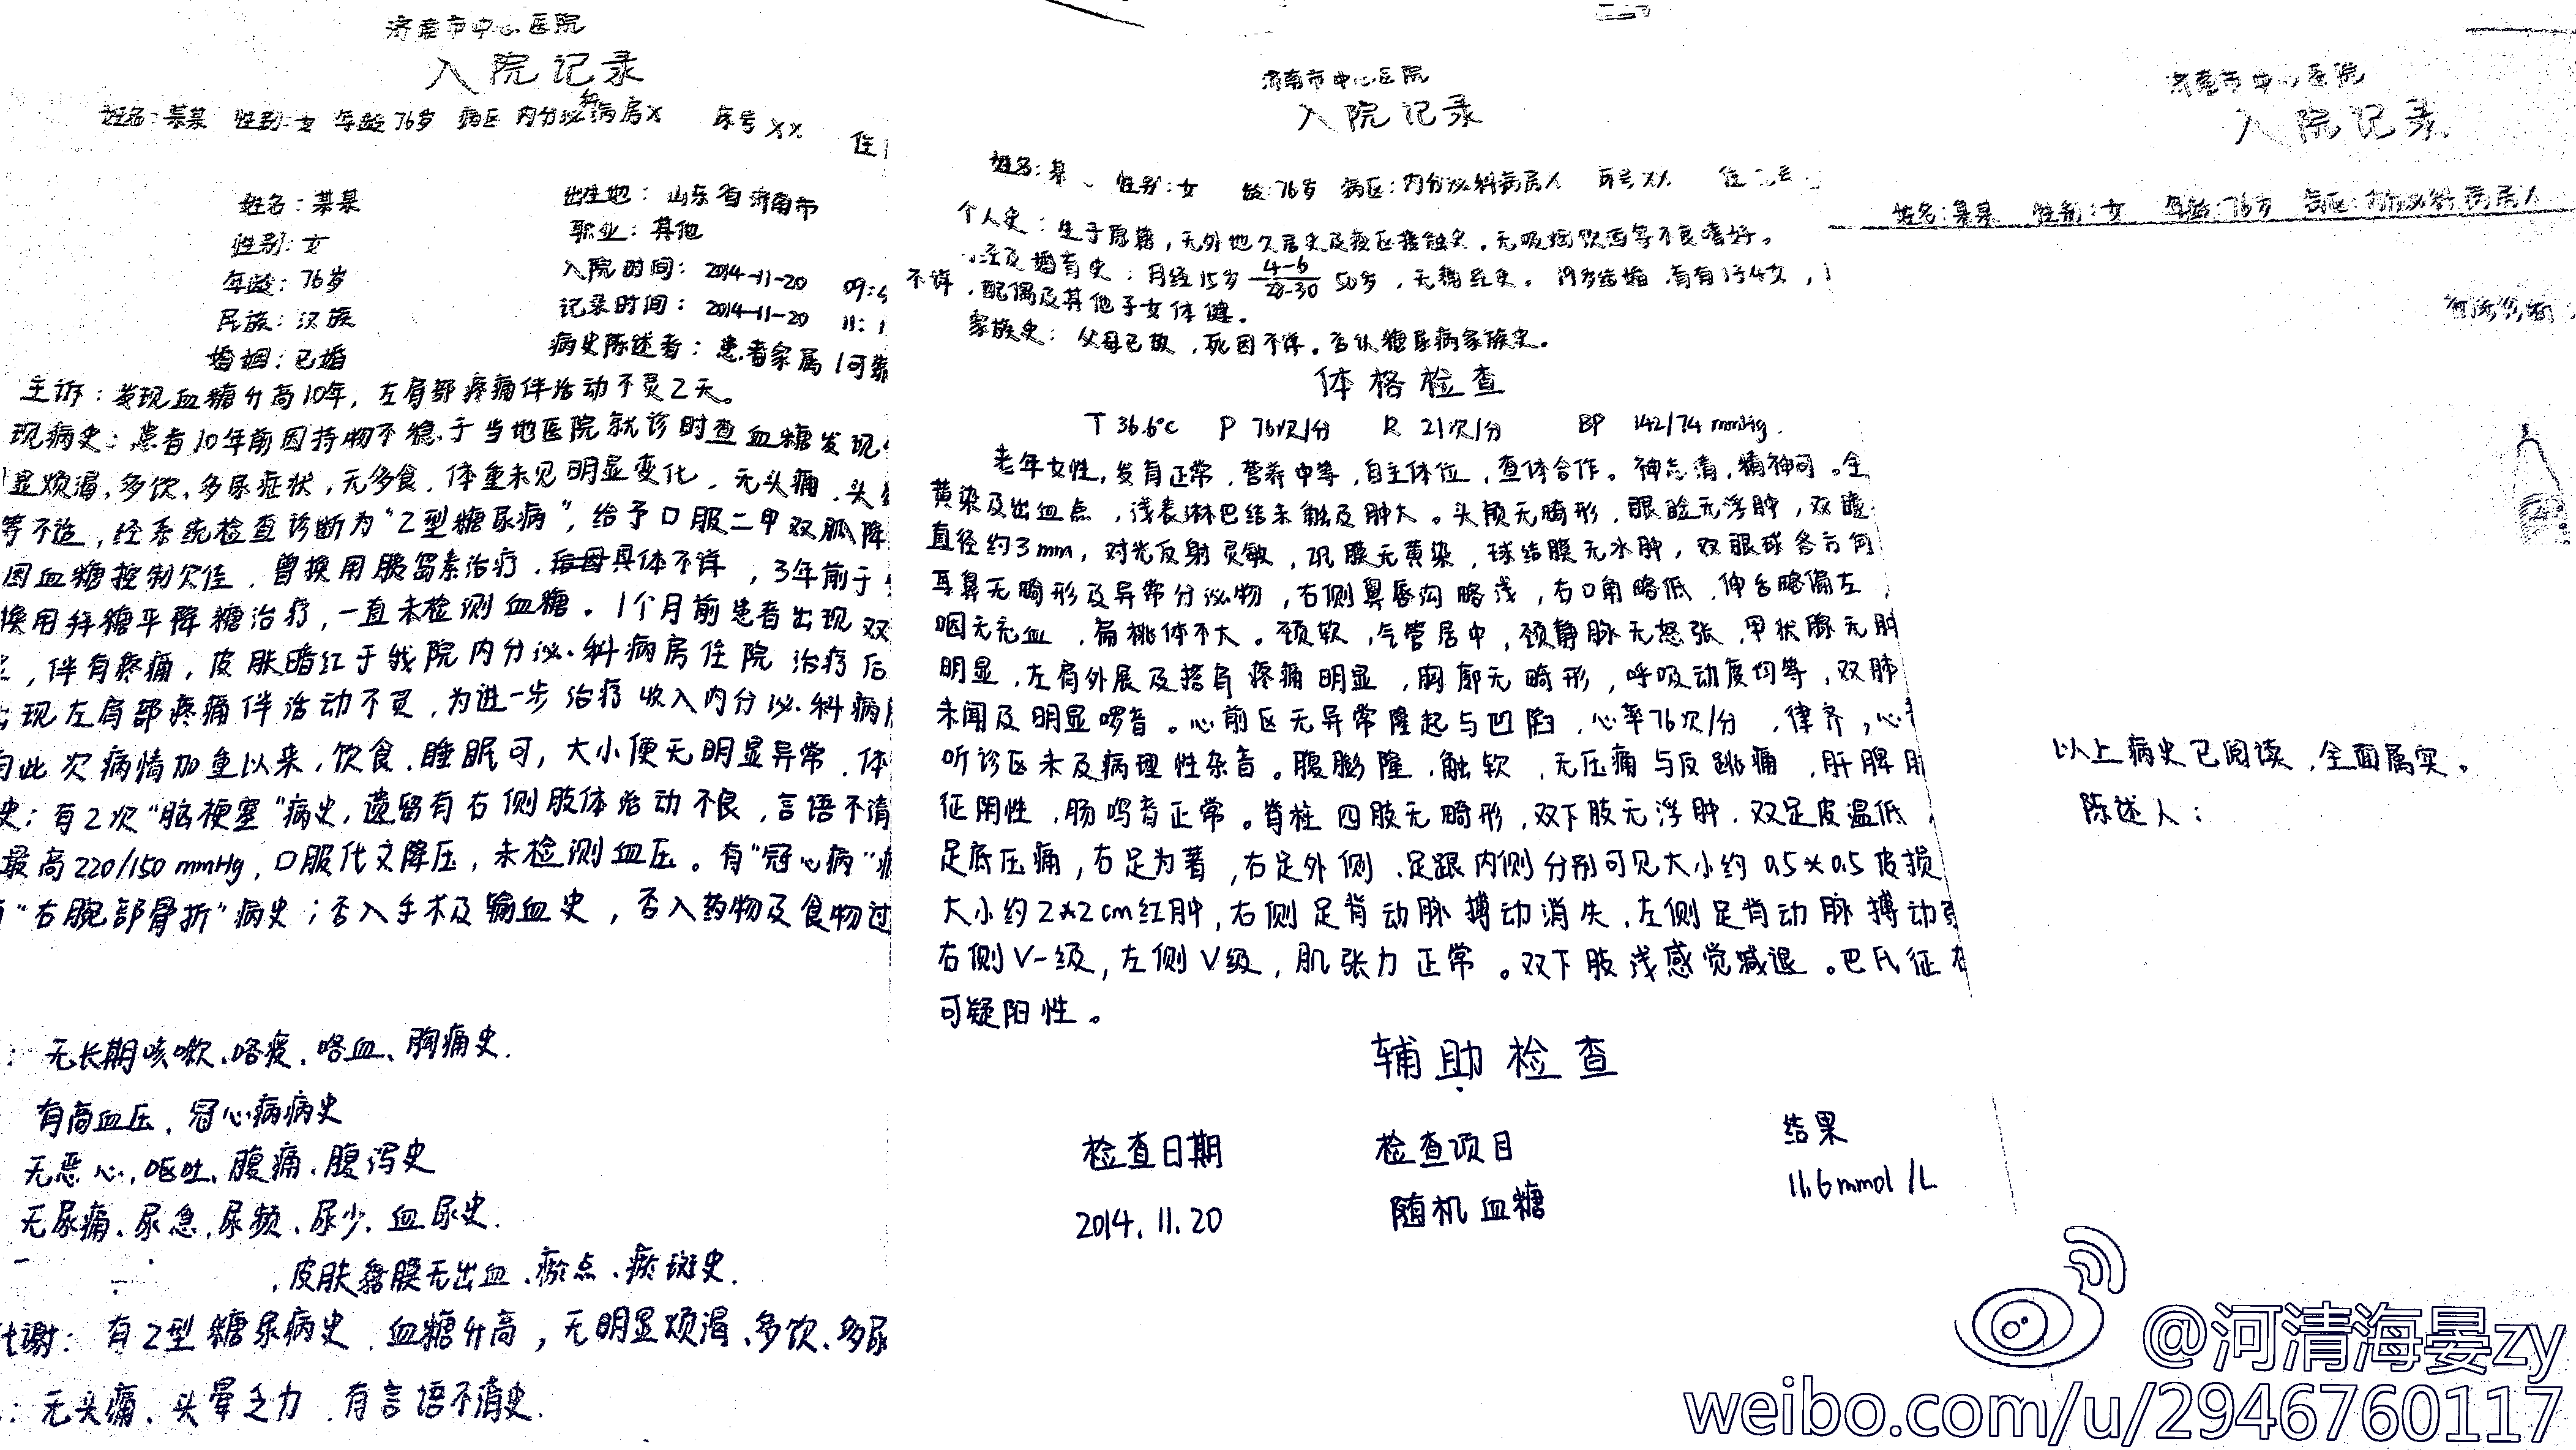 济南市中心医院
入院记录
姓名:某某 性别:女 年龄76岁 病区 内分泌科病房X 床号XX 住
姓名:某某 出生地:山东省济南市
性别:女 职业:其他
年龄:76岁 入院时间:2014-11-20 09:
民族:汉族 记录时间:2014-11-20 11:1
婚姻:已婚 病史陈述者:患者家属
主诉:发现血糖升高10年,左肩部疼痛伴活动不灵2天。
现病史:患者10年前因持物不稳.于当地医院就诊时查血糖发现
显烦渴,多饮、多尿症状,无多食.体重未见明显变化、无头痛、头
等不适,经系统检查诊断为"2型糖尿病",给予口服二甲双胍降
因血糖控制欠佳.曾换用胰岛素治疗.具体不详,3年前于
换用拜糖平降糖治疗,一直未检测血糖。1个月前患者出现双
,伴有疼痛,皮肤暗红于我院内分泌.科病房住院治疗后
现左肩部疼痛伴活动不灵.为进一步治疗收入内分泌.科病
自此次病情加重以来,饮食.睡眠可,大小便无明显异常.体
史:有2次"脑梗塞"病史,遗留有右侧肢体活动不良,言语不清
最高220/150mmHg,口服代文降压,未检测血压。有"冠心病"
"右腕部骨折"病史;否入手术及输血史,否入药物及食物过
:无长期咳嗽、咯痰、咯血、胸痛史.
有高血压、冠心病病史
无恶心,呕吐、腹痛、腹泻史
无尿痛、尿急,尿频、尿少.血尿史.
,皮肤黏膜无出血、瘀点、瘀斑史.
代谢:有2型糖尿病史.血糖升高,无明显烦渴、多饮、多尿
:无头痛、头晕乏力.有言语不清史.
济南市中心医院
入院记录
姓名:某 性别:女 龄:76岁 病区:内分泌科病房X 床号XX 住
个人史:生于原籍,无外地久居史及疫区接触史,无吸烟饮酒等不良嗜好。
经及婚育史:月经15岁 4-6/28-30 50岁,无痛经史。19岁结婚.育有1子4女,
不详,配偶及其他子女体健。
家族史:父母已故,死因不详。否认糖尿病家族史。
体格检查
T 36.6℃ P 76次/分 R 21次/分 BP 142/74mmHg.
老年女性,发育正常,营养中等,自主体位,查体合作。神志清,精神可。全
黄染及出血点,浅表淋巴结未触及肿大。头颅无畸形,眼睑无浮肿,双瞳
直径约3mm,对光反射灵敏,巩膜无黄染,球结膜无水肿,双眼球各方向
耳鼻无畸形及异常分泌物,右侧鼻唇沟略浅,右口角略低.伸舌略偏左,
咽无充血,扁桃体不大。颈软,气管居中,颈静脉无怒张,甲状腺无肿
明显,左肩外展及搭肩疼痛明显,胸廓无畸形,呼吸动度均等,双肺
未闻及明显啰音。心前区无异常隆起与凹陷.心率76次/分,律齐,心
听诊区未及病理性杂音。腹膨隆.触软,无压痛与反跳痛,肝脾肋
征阴性,肠鸣音正常。脊柱四肢无畸形,双下肢无浮肿.双足皮温低,
足底压痛,右足为著,右足外侧.足跟内侧分别可见大小约0.5×0.5皮损
大小约2×2cm红肿,右侧足背动脉搏动消失.左侧足背动脉搏动
右侧V-级,左侧V级,肌张力正常。双下肢浅感觉减退。巴氏征
可疑阳性。
辅助检查
检查日期 检查项目 结果
2014.11.20 随机血糖 11.6mmol/L
济南市中心医院
入院记录
姓名:某某 性别:女 年龄:76岁 病区:内分泌科病房X
以上病史已阅读,全面属实。
陈述人:
@河清海晏zy
weibo.com/u/2946760117